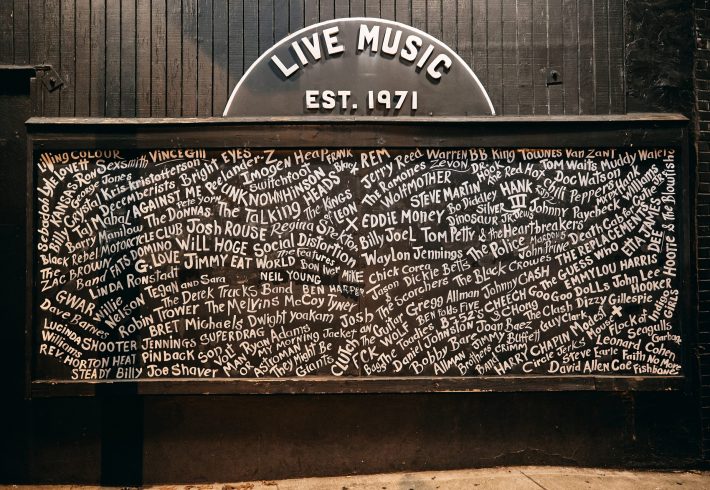 LIVE MUSIC
EST. 1971
Living COLOUR
VINCE GILL
EYES
Imogen Heap
FRANK
REM
Jerry Reed
WARREN
ZEVON
BB King
TOWNES VAN ZANT
Muddy Waters
Lyle LOVETT
Ron Sexsmith
Kris Kristofferson
Bright
Pee Lander-Z
Switchfoot
The Ramones
Tom Waits
Doc Watson
Sebadoh
Bill
KANSAS
George Jones
Decemberists
UNKNOWN HINSON
WOLFMOTHER
Red Hot
Chili Peppers
Hank
Williams
Billy Crystal
AGAINST ME
Pete Yorn
The Talking HEADS
STEVE MARTIN
HANK
III
Death Cab for Cutie
Taj Mahal
The DONNAS
The Kings of LEON
EDDIE MONEY
Bo Diddley
SILVER JEWS
Johnny Paycheck
Barry Manilow
Josh ROUSE
Regina Spektor
Billy Joel
Dinosaur Jr.
Tom Petty & the Heartbreakers
THE REPLACEMENTS
ETTA JAMES
Black Rebel MOTORCYCLE CLUB
WILL HOGE
Social Distortion
Waylon Jennings
The Police
John Prine
THE GUESS WHO
DEE
Hootie & the Blowfish
Zac BROWN BAND
FATS DOMINO
G-LOVE
JIMMY EAT WORLD
The features
BON IVER
MIKE
Chick Corea
Dickie Betts
The Black Crowes
EMMYLOU HARRIS
LINDA RONSTADT
NEIL YOUNG
BEN HARPER
Jason & The Scorchers
Johnny CASH
GOO GOO DOLLS
John Lee HOOKER
GWAR
Willie Nelson
Tegan and Sara
The Derek Trucks Band
The Melvins
McCoy Tyner
Gregg Allman
CHEECH
The Clash
Dizzy Gillespie
INDIGO GIRLS
Dave Barnes
Robin Trower
BRET Michaels
Dwight Yoakam
Josh
Guitar Wolf
BEN FOLDS FIVE
B-52's
Joan Baez
Guy Clark
Flock of Seagulls
Lucinda Williams
SHOOTER JENNINGS
SUPERDRAG
Ryan Adams
My Morning Jacket
CLUTCH
Daniel Johnston
Jimmy Buffett
HARRY CHAPIN
Garbage
REV. HORTON HEAT
Pinback
Son Volt
MAN OR ASTROMAN
They Might Be Giants
FCK
Bobby Bare
Allman Brothers Band
Circle Jerks
Steve Earle
Leonard Cohen
Faith No More
STEADY
Billy Joe Shaver
David Allen Coe
Fishbone